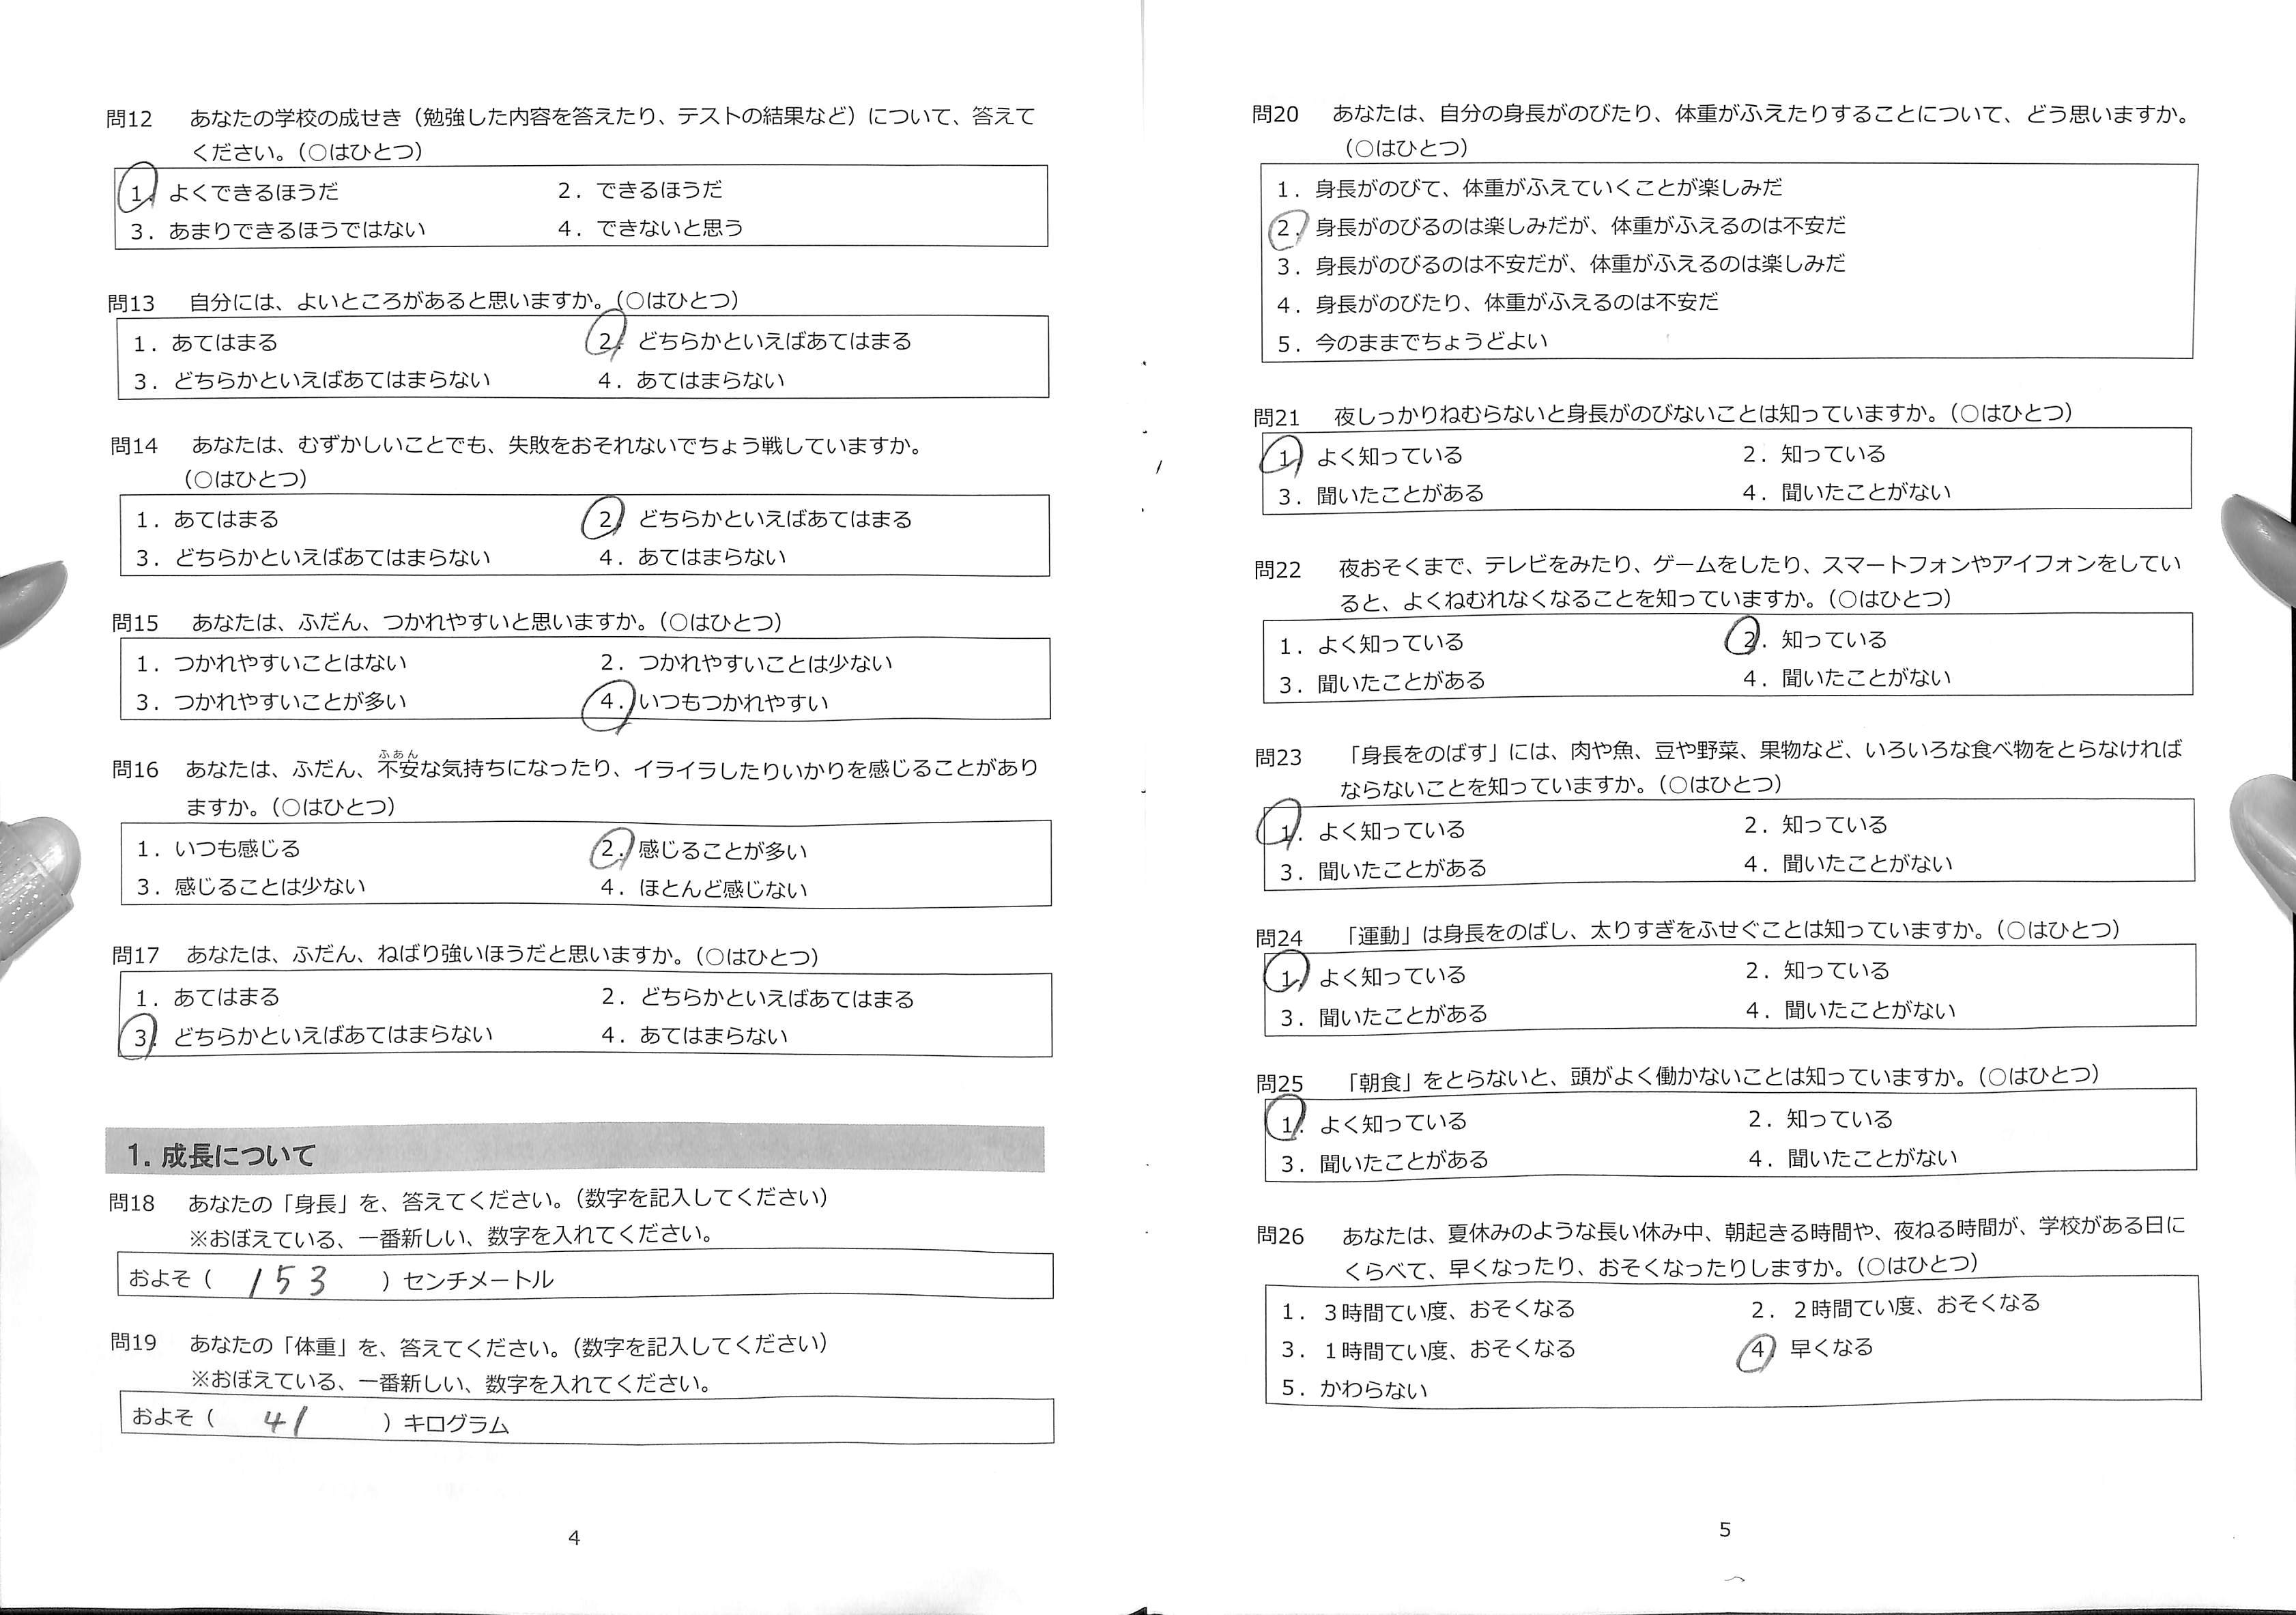 問12 あなたの学校の成せき（勉強した内容を答えたり、テストの結果など）について、答えて
ください。（○はひとつ）
1．よくできるほうだ 2．できるほうだ
3．あまりできるほうではない 4．できないと思う
問13 自分には、よいところがあると思いますか。（○はひとつ）
1．あてはまる 2．どちらかといえばあてはまる
3．どちらかといえばあてはまらない 4．あてはまらない
問14 あなたは、むずかしいことでも、失敗をおそれないでちょう戦していますか。
（○はひとつ）
1．あてはまる 2．どちらかといえばあてはまる
3．どちらかといえばあてはまらない 4．あてはまらない
問15 あなたは、ふだん、つかれやすいと思いますか。（○はひとつ）
1．つかれやすいことはない 2．つかれやすいことは少ない
3．つかれやすいことが多い 4．いつもつかれやすい
ふあん
問16 あなたは、ふだん、不安な気持ちになったり、イライラしたりいかりを感じることがあり
ますか。（○はひとつ）
1．いつも感じる 2．感じることが多い
3．感じることは少ない 4．ほとんど感じない
問17 あなたは、ふだん、ねばり強いほうだと思いますか。（○はひとつ）
1．あてはまる 2．どちらかといえばあてはまる
3．どちらかといえばあてはまらない 4．あてはまらない
1. 成長について
問18 あなたの「身長」を、答えてください。（数字を記入してください）
※おぼえている、一番新しい、数字を入れてください。
およそ（ 153 ）センチメートル
問19 あなたの「体重」を、答えてください。（数字を記入してください）
※おぼえている、一番新しい、数字を入れてください。
およそ（ 41 ）キログラム
4
問20 あなたは、自分の身長がのびたり、体重がふえたりすることについて、どう思いますか。
（○はひとつ）
1．身長がのびて、体重がふえていくことが楽しみだ
2．身長がのびるのは楽しみだが、体重がふえるのは不安だ
3．身長がのびるのは不安だが、体重がふえるのは楽しみだ
4．身長がのびたり、体重がふえるのは不安だ
5．今のままでちょうどよい
問21 夜しっかりねむらないと身長がのびないことは知っていますか。（○はひとつ）
1．よく知っている 2．知っている
3．聞いたことがある 4．聞いたことがない
問22 夜おそくまで、テレビをみたり、ゲームをしたり、スマートフォンやアイフォンをしてい
ると、よくねむれなくなることを知っていますか。（○はひとつ）
1．よく知っている 2．知っている
3．聞いたことがある 4．聞いたことがない
問23 「身長をのばす」には、肉や魚、豆や野菜、果物など、いろいろな食べ物をとらなければ
ならないことを知っていますか。（○はひとつ）
1．よく知っている 2．知っている
3．聞いたことがある 4．聞いたことがない
問24 「運動」は身長をのばし、太りすぎをふせぐことは知っていますか。（○はひとつ）
1．よく知っている 2．知っている
3．聞いたことがある 4．聞いたことがない
問25 「朝食」をとらないと、頭がよく働かないことは知っていますか。（○はひとつ）
1．よく知っている 2．知っている
3．聞いたことがある 4．聞いたことがない
問26 あなたは、夏休みのような長い休み中、朝起きる時間や、夜ねる時間が、学校がある日に
くらべて、早くなったり、おそくなったりしますか。（○はひとつ）
1．３時間てい度、おそくなる 2．２時間てい度、おそくなる
3．１時間てい度、おそくなる 4．早くなる
5．かわらない
5